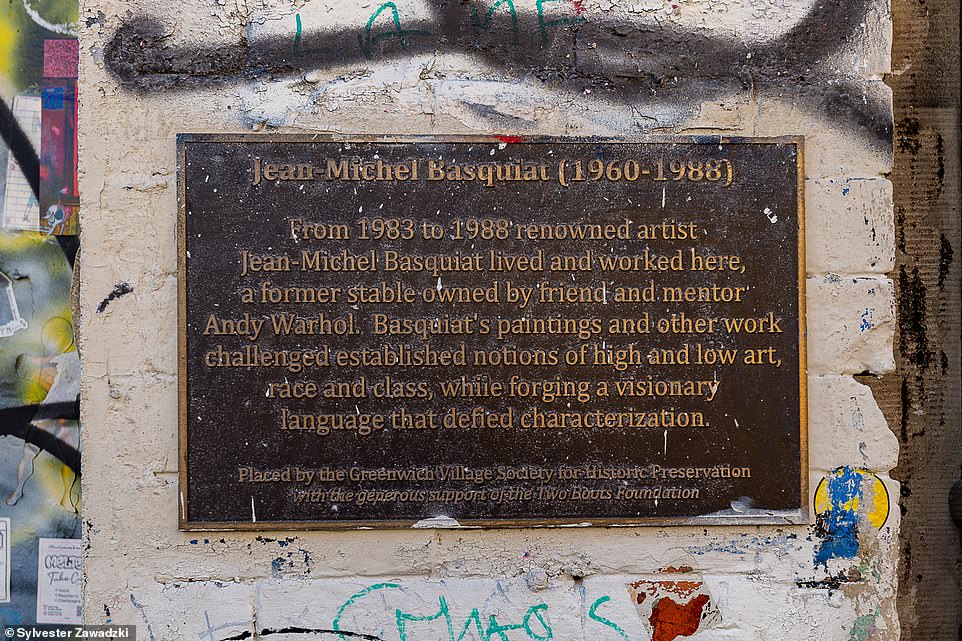 Jean-Michel Basquiat (1960-1988)
From 1983 to 1988 renowned artist
Jean-Michel Basquiat lived and worked here,
a former stable owned by friend and mentor
Andy Warhol. Basquiat's paintings and other work
challenged established notions of high and low art,
race and class, while forging a visionary
language that defied characterization.
Placed by the Greenwich Village Society for Historic Preservation
with the generous support of the Two Boots Foundation
© Sylvester Zawadzki